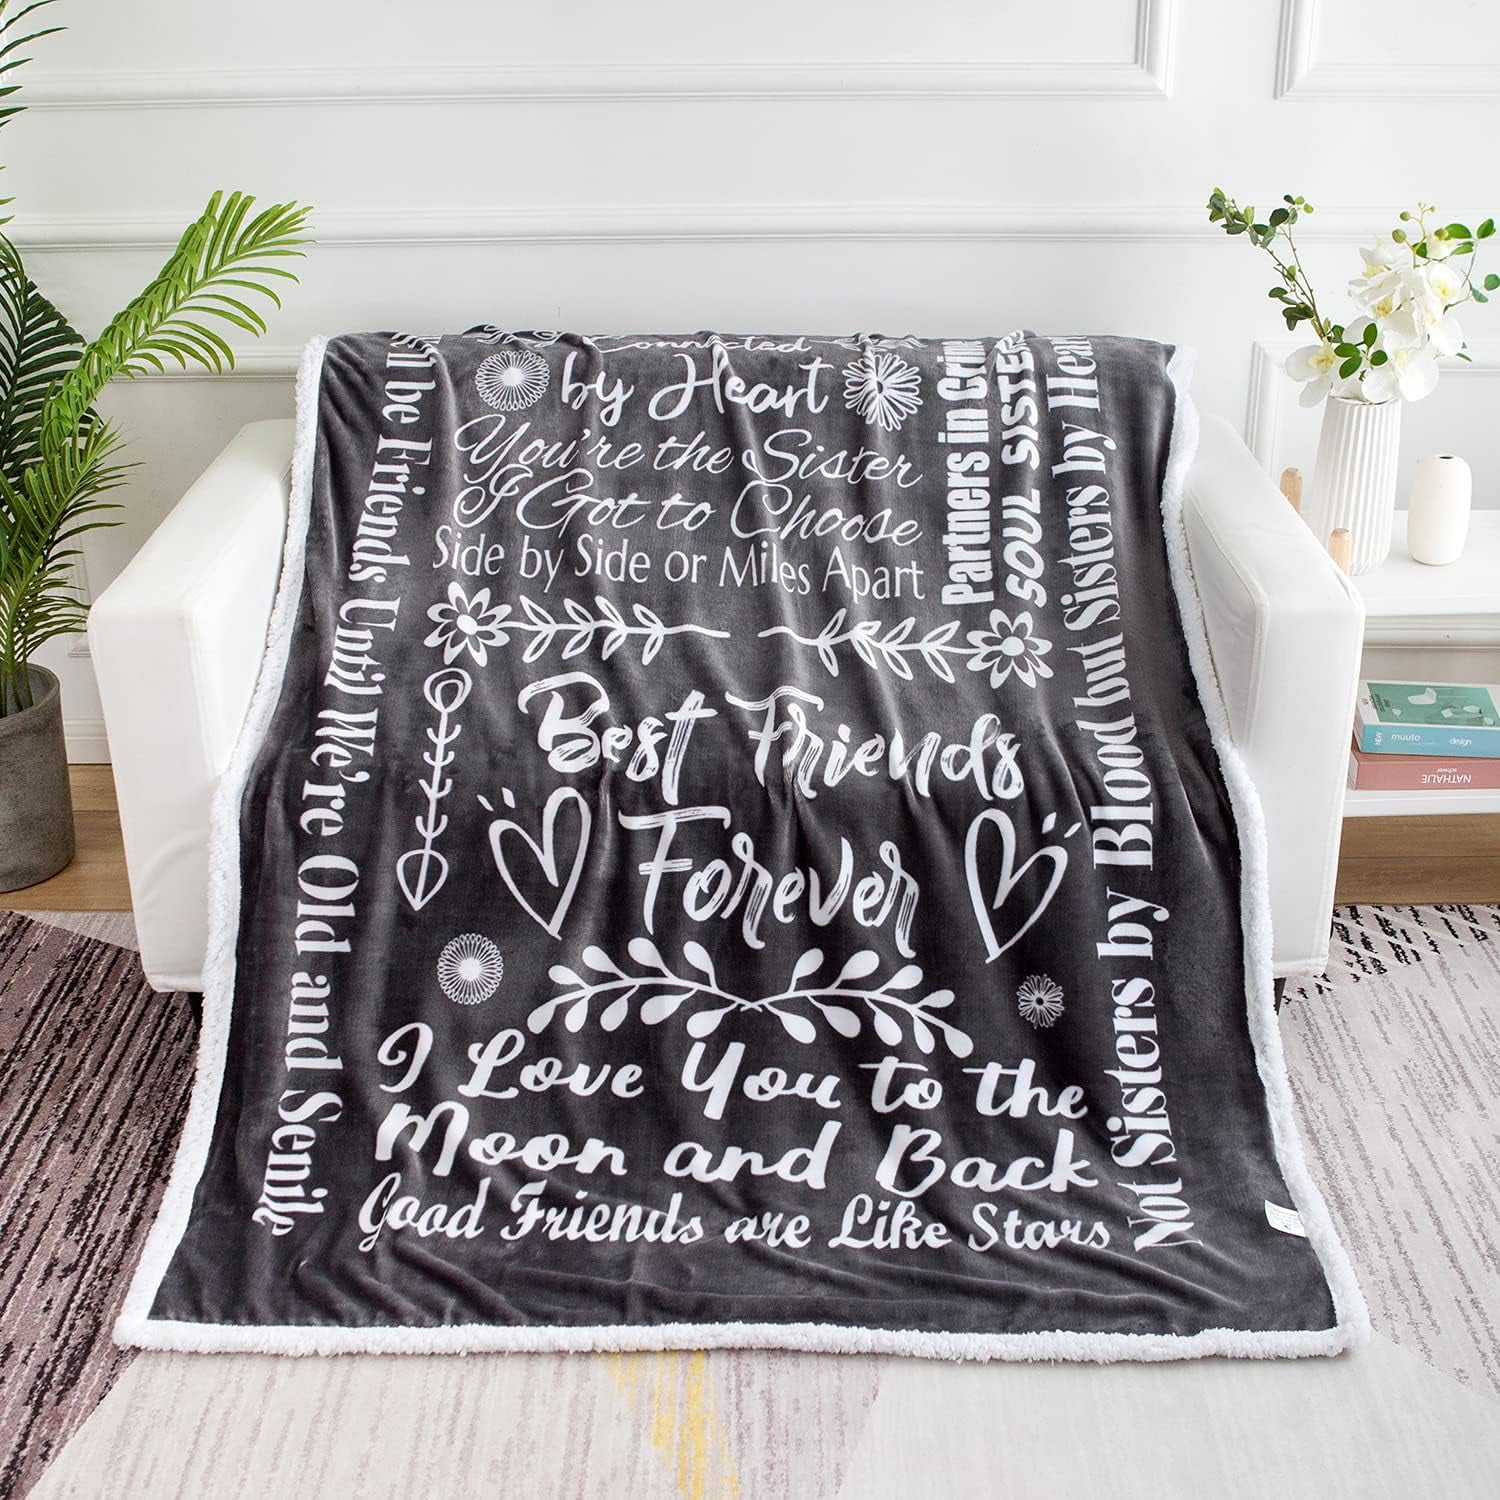 Connected
by Heart
You're the Sister
I Got to Choose
Side by Side or Miles Apart
Partners in Crime
SOUL SISTER
Best Friends
Forever
I Love You to the
Moon and Back
Good Friends are Like Stars
be Friends Until We're Old and Senile
Not Sisters by Blood but Sisters by Heart
NEW
muuto
design
NATHALIE
schwer